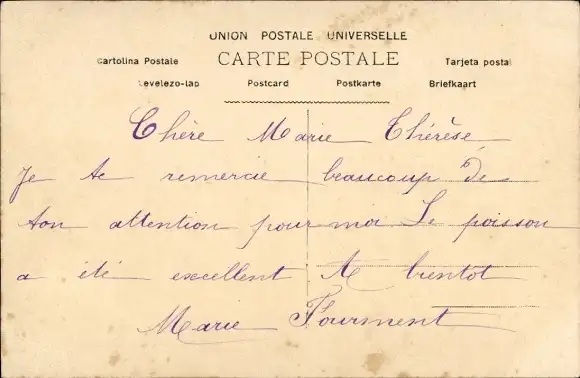 UNION POSTALE UNIVERSELLE
CARTE POSTALE
Cartolina Postale Tarjeta postal
Levelezo-lap Postcard Postkarte Briefkaart
Chère Marie Thérèse
Je te remercie beaucoup de
ton attention pour moi Le poisson
a été excellent A bientot
Marie Fourment